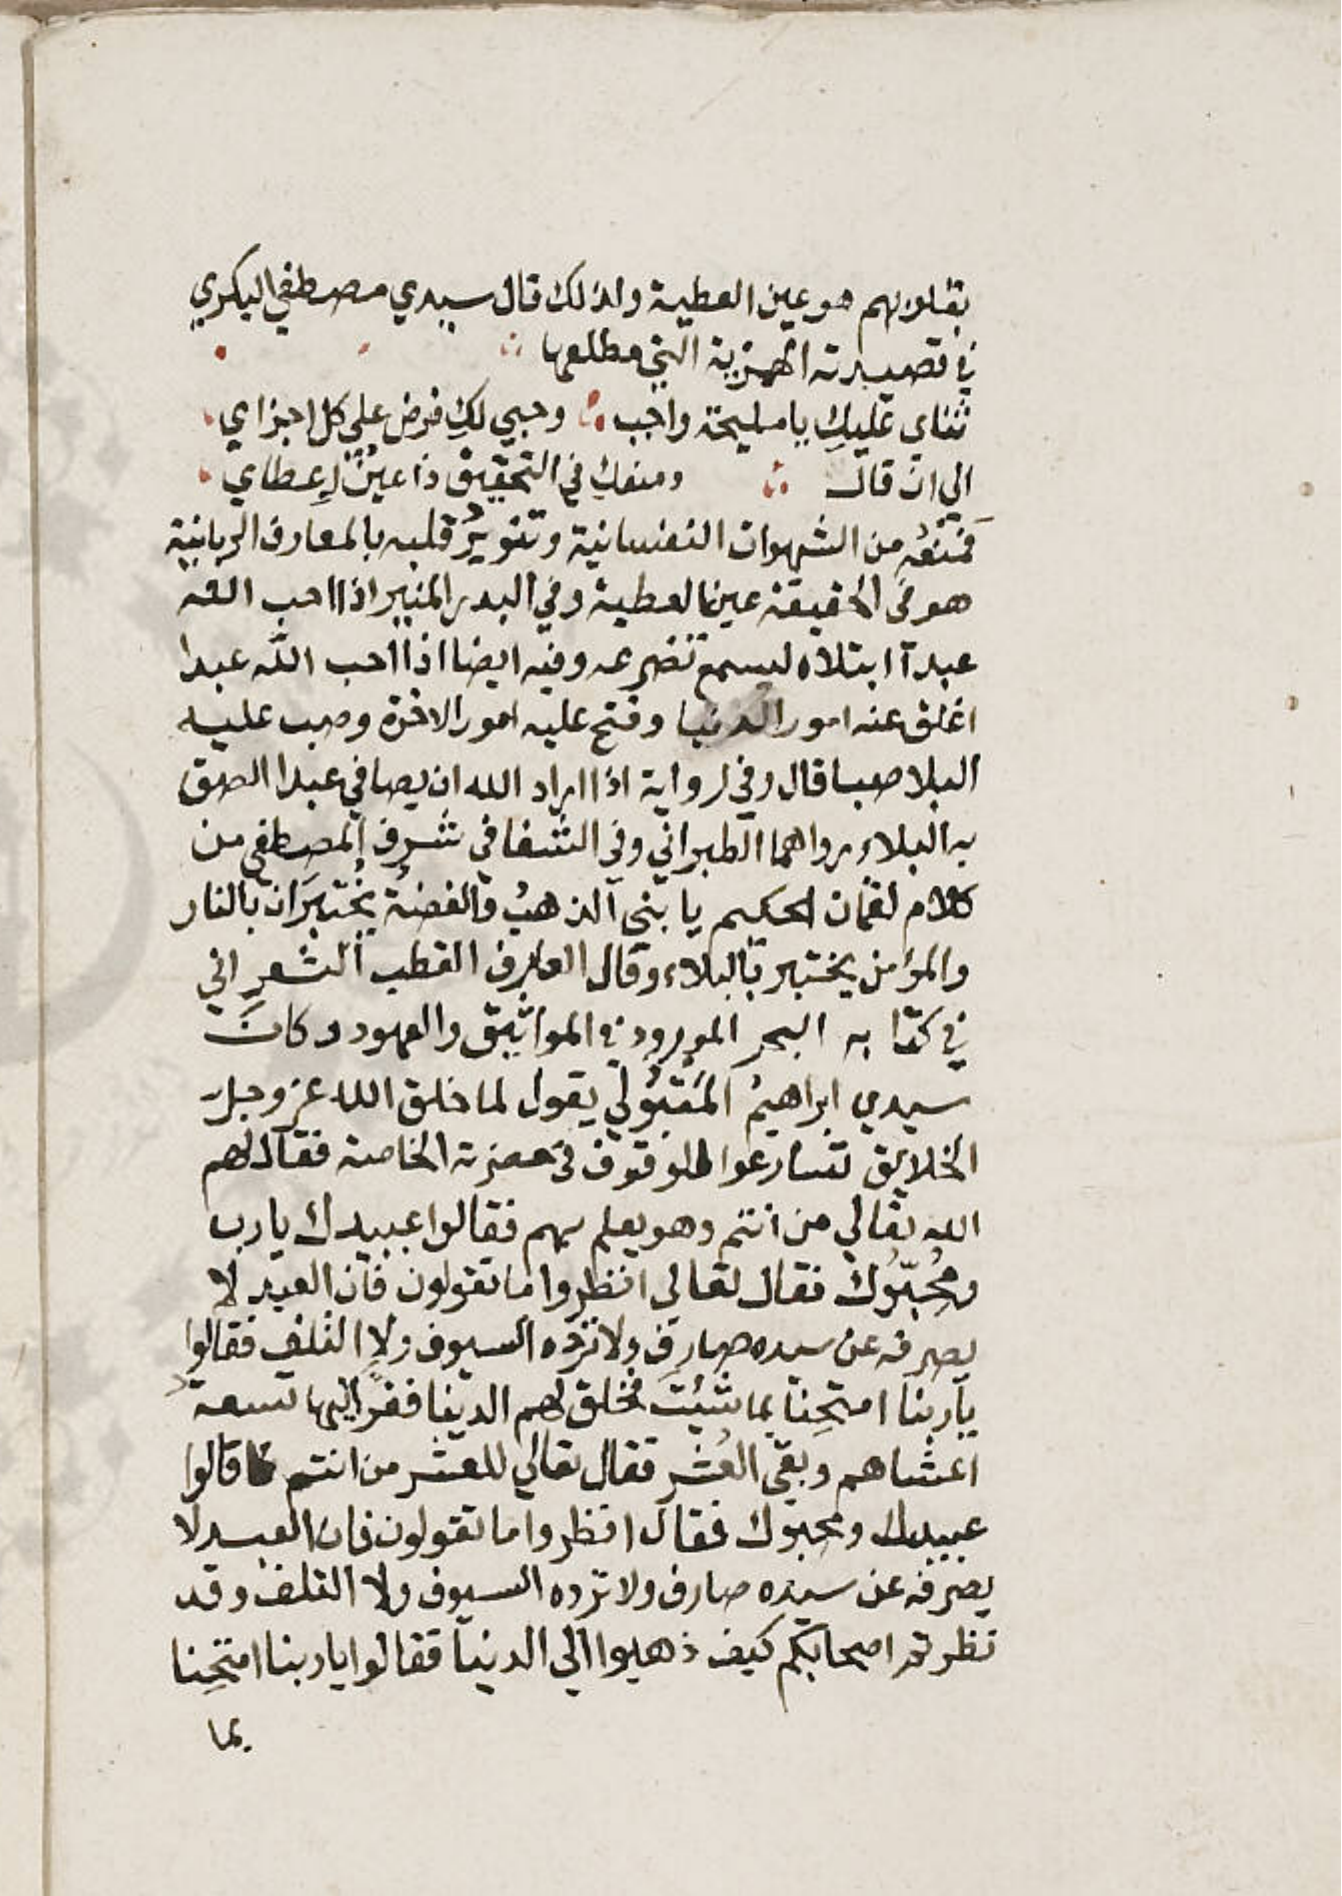 بقلوبهم هو عين العطية ولذلك قال سيدي مصطفي البكري
في قصيدته الهمزية التي مطلعها
ثناي عليكِ يا مليحة واجب وحبي لكِ فرض علي كل اجزاي
الي ان قال ومنعك في التحقيق ذا عينُ إعطاي
فمَنعُه من الشهوات النفسانية وتنويرُ قلبه بالمعارف الربانية
هو في الحقيقة عين العطية وفي البدر المنير اذا احب الله
عبدآ ابتلاه ليسمع تضرعه وفيه ايضا اذا احب اللّه عبدا
اغلق عنه امور الدنيا وفتح عليه امور الاخرة وصب عليه
البلا صبا قال وفي رواية اذا اراد الله ان يصافي عبدا الصق
به البلاء رواهما الطبراني وفي الشفا في شرف المصطفي من
كلام لقمان الحكيم يا بني الذهبُ والفضةُ يُختبَران بالنار
والمؤمن يختبر بالبلاء وقال العارف القطب الشعراني
في كتابه البحر المورود في المواثيق والعهود وكانَ
سيدي ابراهيمُ المَتبُولي يقول لما خلق الله عز وجل
الخلايق تسارعوا للوقوف في حضرته الخاصة فقال لهم
الله تعالي من أنتم وهو يعلم بهم فقالوا عبيدك يا رب
ومُحِبّوُك فقال تعالي انظروا ما تقولون فان العبد لا
يصرفه عن سيده صارف ولا تردّه السيوف ولا التلف فقالوا
يا ربنا امتحِنّا بما شئتَ فخلق لهم الدنيا ففرّ اليها تسعة
اعشارهم وبقي العُشر فقال تعالي للعشر من انتم قالوا
عبيدك ومحبوك فقال انظروا ما تقولون فان العبد لا
يصرفه عن سيده صارف ولا ترده السيوف ولا التلف وقد
نظرتم اصحابكم كيف ذهبوا الي الدنيا فقالوا يا ربنا امتحِنا
بما